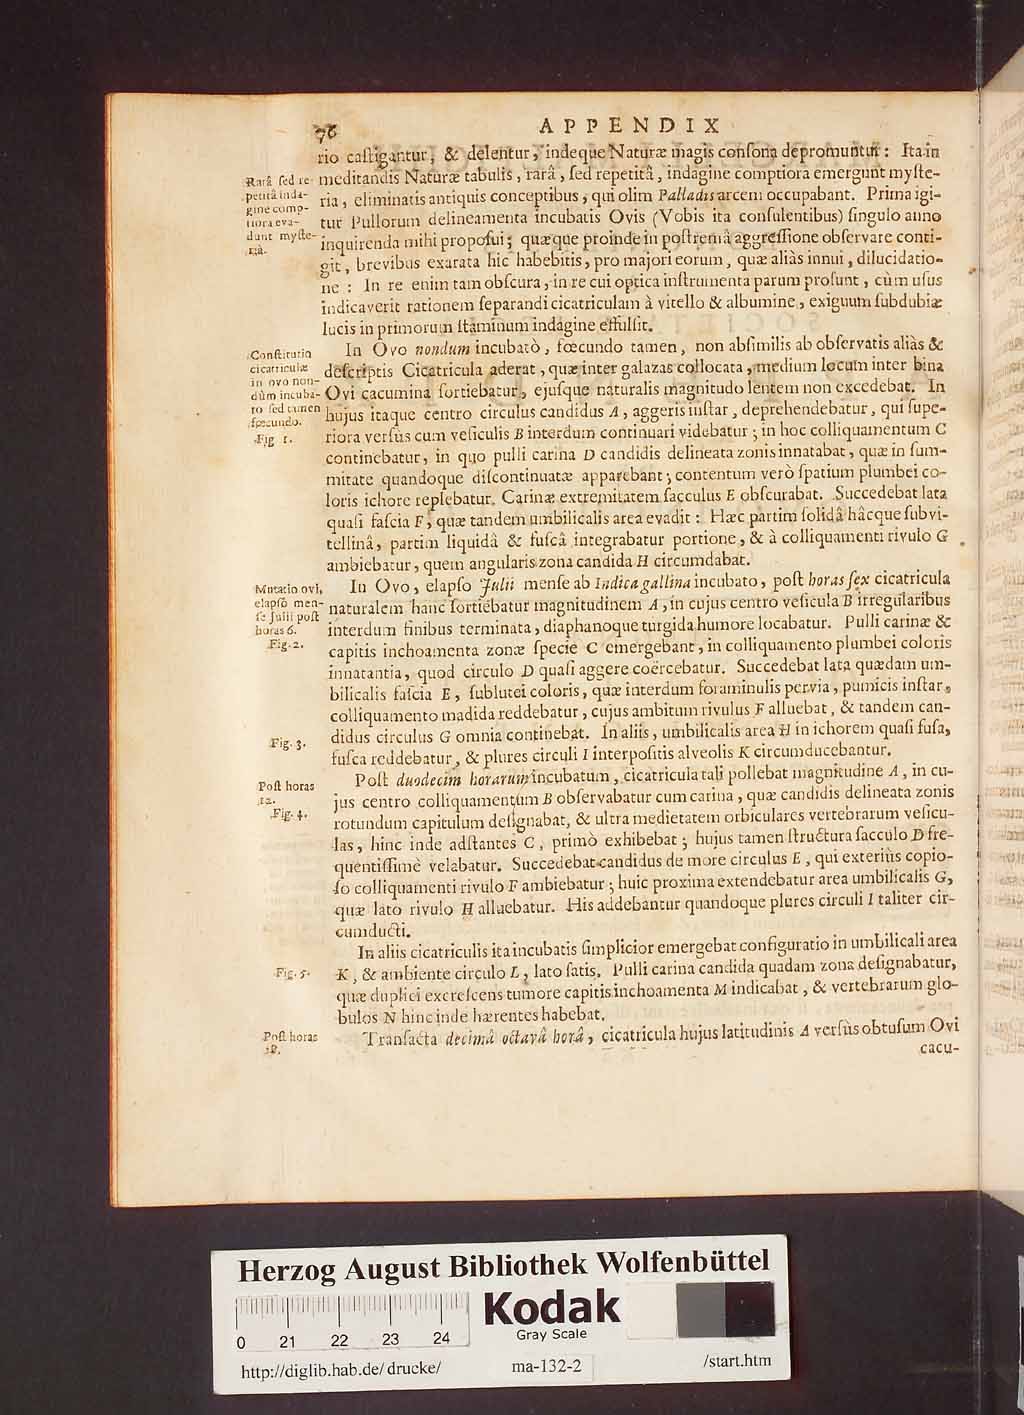 76
APPENDIX
rio castigantur, & delentur, indeque Naturæ magis consona depromuntur: Ita in
meditandis Naturæ tabulis, rarâ, sed repetitâ, indagine comptiora emergunt myste-
ria, eliminatis antiquis conceptibus, qui olim Palladis arcem occupabant. Prima igi-
tur Pullorum delineamenta incubatis Ovis (Vobis ita consulentibus) singulo anno
inquirenda mihi proposui; quæque proinde in postremâ aggressione observare conti-
git, brevibus exarata hic habebitis, pro majori eorum, quæ aliàs innui, dilucidatio-
ne: In re enim tam obscura, in re cui optica instrumenta parum prosunt, cùm usus
indicaverit rationem separandi cicatriculam à vitello & albumine, exiguum subdubiæ
lucis in primorum staminum indagine effulsit.
Rarâ sed re-
petitâ inda-
gine comp-
tiora eva-
dunt myste-
ria.
In Ovo nondum incubatò, fœcundo tamen, non absimilis ab observatis aliàs &
descriptis Cicatricula aderat, quæ inter galazas collocata, medium locum inter bina
Ovi cacumina sortiebatur, ejusque naturalis magnitudo lentem non excedebat. In
hujus itaque centro circulus candidus A, aggeris instar, deprehendebatur, qui supe-
riora versùs cum vesiculis B interdum continuari videbatur; in hoc colliquamentum C
continebatur, in quo pulli carina D candidis delineata zonis innatabat, quæ in sum-
mitate quandoque discontinuatæ apparebant; contentum verò spatium plumbei co-
loris ichore replebatur. Carinæ extremitatem sacculus E obscurabat. Succedebat lata
quasi fascia F, quæ tandem umbilicalis area evadit: Hæc partim solidâ hâcque subvi-
tellinâ, partim liquidâ & fuscâ integrabatur portione, & à colliquamenti rivulo G
ambiebatur, quem angularis zona candida H circumdabat.
Constitutio
cicatriculæ
in ovo non-
dùm incuba-
to sed tamen
fœcundo.
Fig 1.
In Ovo, elapso Julii mense ab Indica gallina incubato, post horas sex cicatricula
naturalem hanc sortiebatur magnitudinem A, in cujus centro vesicula B irregularibus
interdum finibus terminata, diaphanoque turgida humore locabatur. Pulli carinæ &
capitis inchoamenta zonæ specie C emergebant, in colliquamento plumbei coloris
innatantia, quod circulo D quasi aggere coërcebatur. Succedebat lata quædam um-
bilicalis fascia E, sublutei coloris, quæ interdum foraminulis pervia, pumicis instar,
colliquamento madida reddebatur, cujus ambitum rivulus F alluebat, & tandem can-
didus circulus G omnia continebat. In aliis, umbilicalis area H in ichorem quasi fusa,
fusca reddebatur, & plures circuli I interpositis alveolis K circumducebantur.
Mutatio ovi,
elapsô men-
se Julii post
horas 6.
Fig. 2.
Fig. 3.
Post duodecim horarum incubatum, cicatricula tali pollebat magnitudine A, in cu-
jus centro colliquamentum B observabatur cum carina, quæ candidis delineata zonis
rotundum capitulum designabat, & ultra medietatem orbiculares vertebrarum vesicu-
las, hinc inde adstantes C, primò exhibebat; hujus tamen structura sacculo D fre-
quentissimè velabatur. Succedebat candidus de more circulus E, qui exteriùs copio-
so colliquamenti rivulo F ambiebatur; huic proxima extendebatur area umbilicalis G,
quæ lato rivulo H alluebatur. His addebantur quandoque plures circuli I taliter cir-
cumducti.
Post horas
12.
Fig. 4.
In aliis cicatriculis ita incubatis simplicior emergebat configuratio in umbilicali area
K, & ambiente circulo L, lato satis. Pulli carina candida quadam zona designabatur,
quæ duplici excrescens tumore capitis inchoamenta M indicabat, & vertebrarum glo-
bulos N hinc inde hærentes habebat.
Fig. 5.
Transacta decimâ octavâ horâ, cicatricula hujus latitudinis A versùs obtusum Ovi
cacu-
Post horas
18.
Herzog August Bibliothek Wolfenbüttel
Kodak
Gray Scale
0 21 22 23 24
http://diglib.hab.de/drucke/
ma-132-2
/start.htm